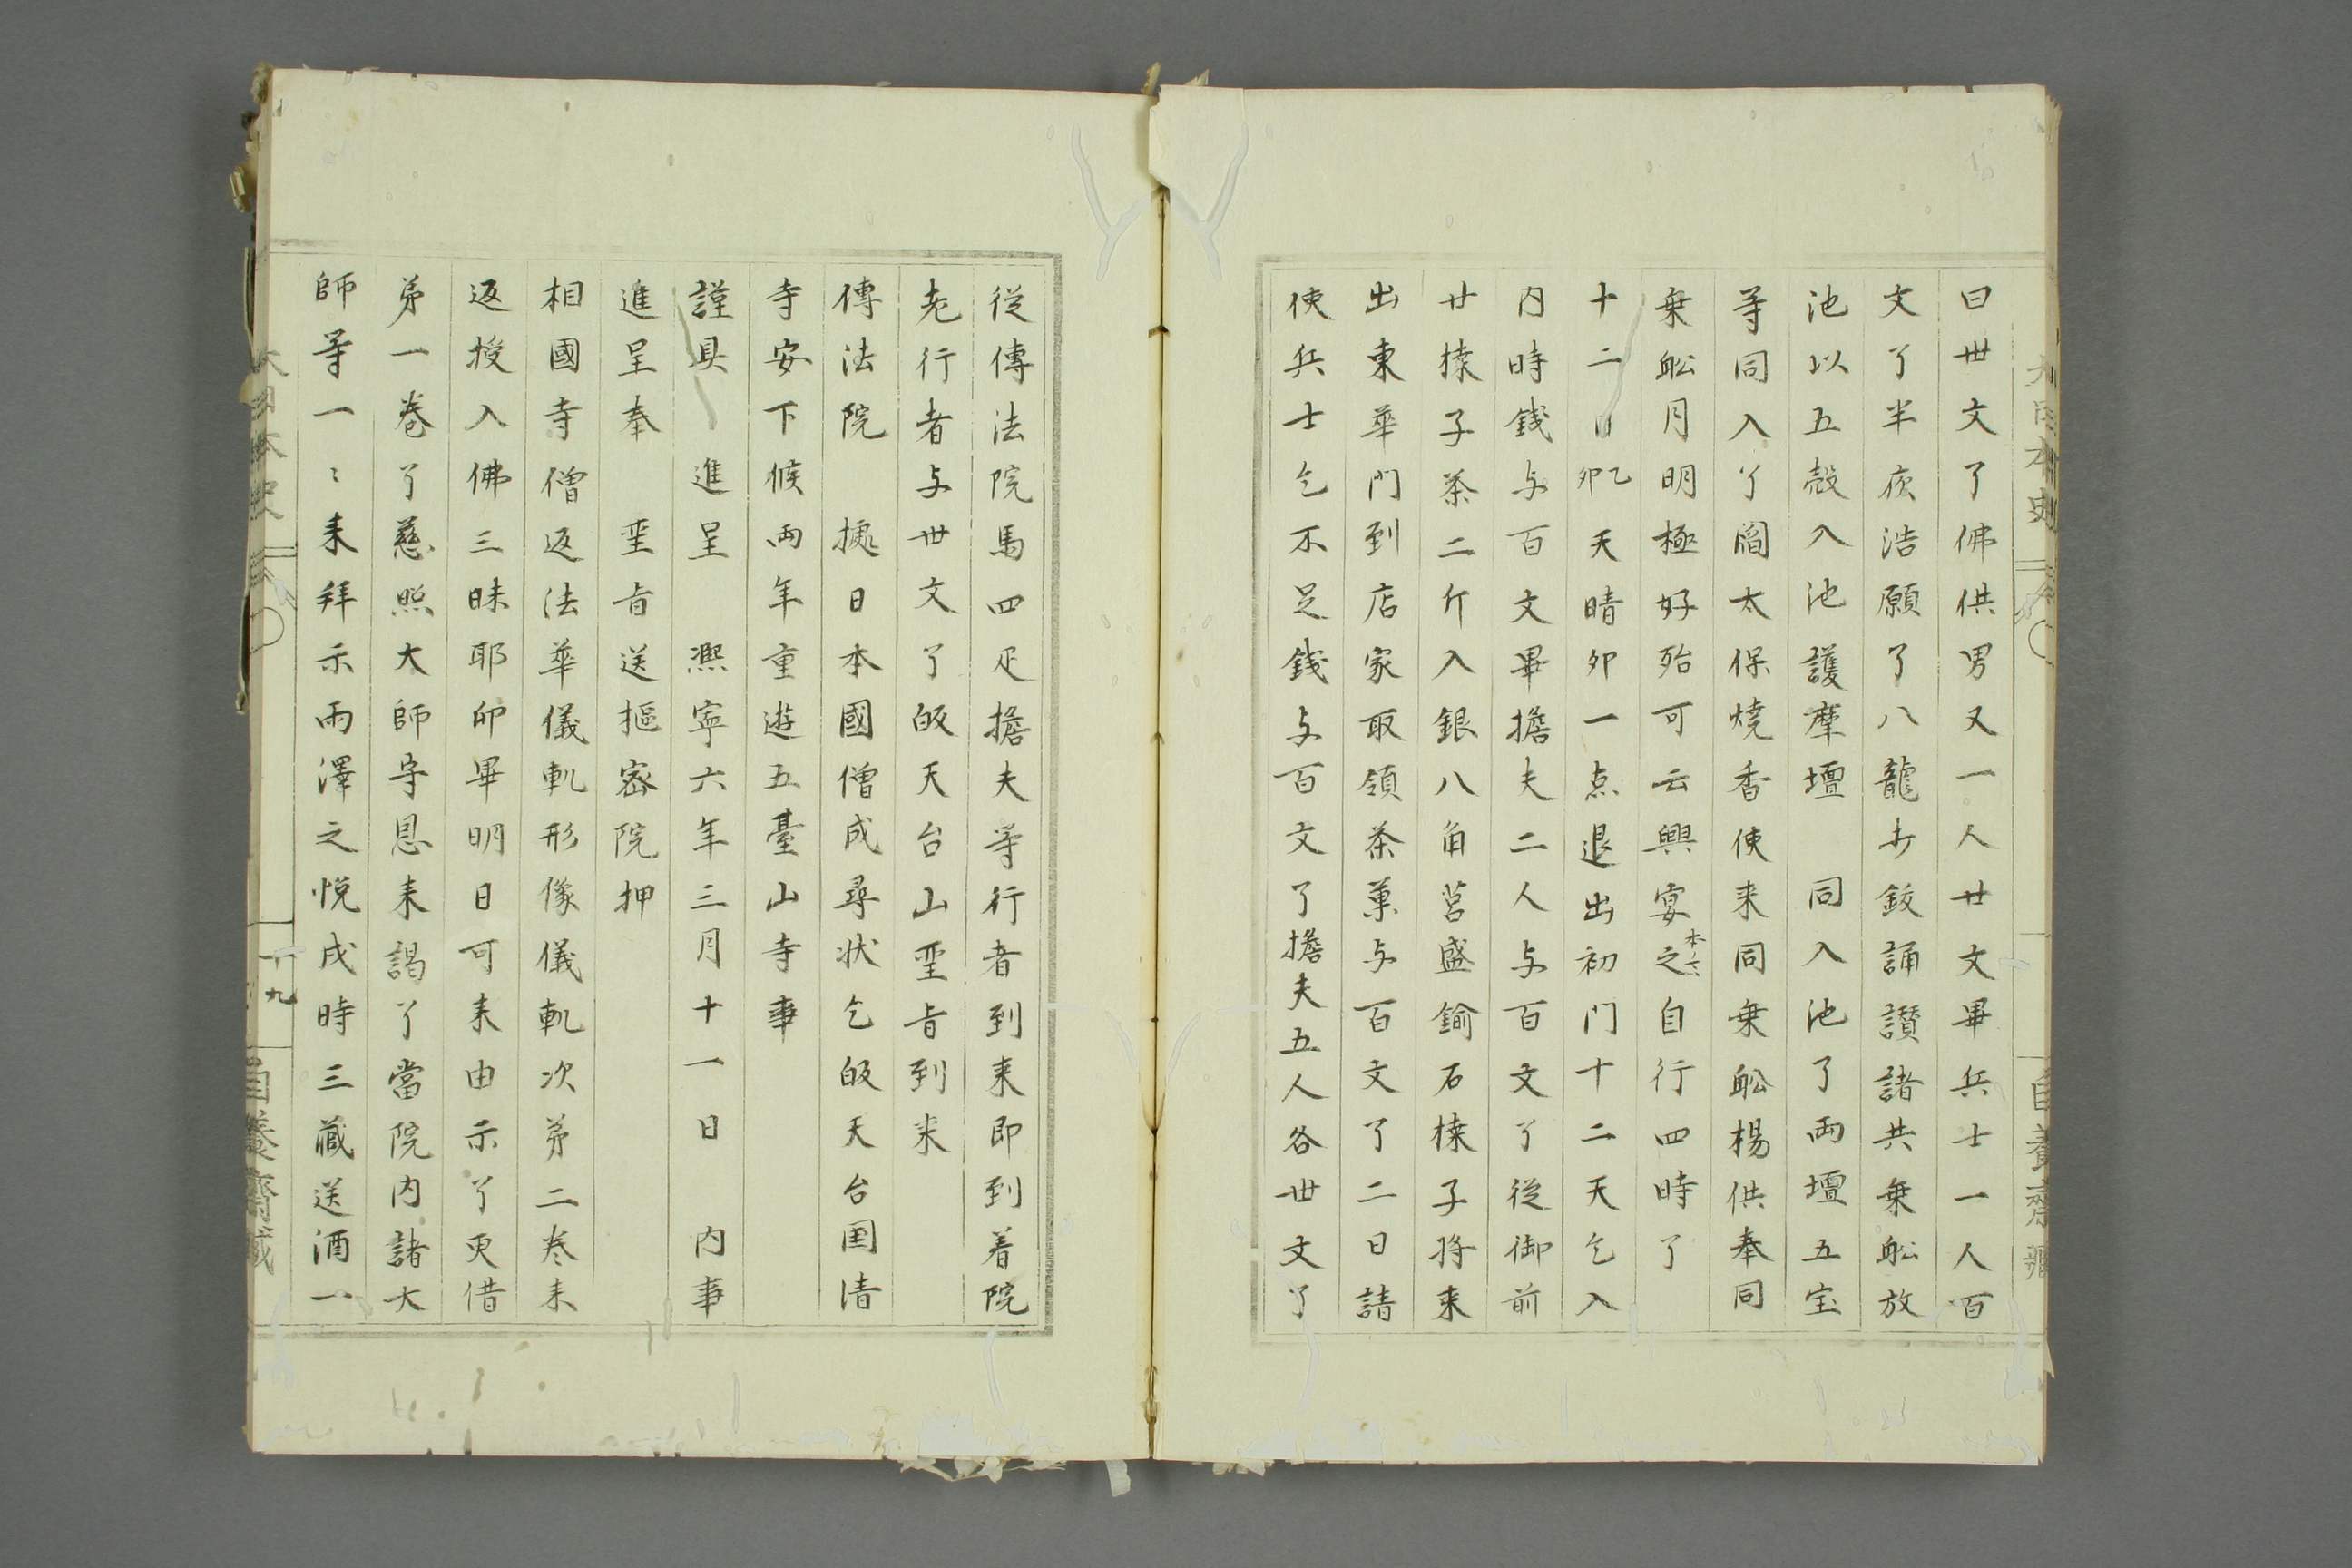 曰卅文了佛供男又一人廿文畢兵士一人百
文了半夜浩願了八龍歩鈸誦讃諸共乗舩放
池以五殻入池護摩壇　同入池了両壇五宝
等同入了閻太保燒香使来同乗舩楊供奉同
乗舩月明極好殆可云興宴之本ノ自行四時了
十二日乙卯天晴卯一点退出初門十二天乞入
内時銭与百文畢擔夫二人与百文了從御前
廿㨍子茶二斤入銀八角莒盛鍮石㨍子将来
出東華門到店家取領茶菓与百文了二日請
使兵士乞不足錢与百文了擔夫五人各卅文了
從傳法院馬四疋擔夫等行者到来即到着院
老行者与卅文了皈天台山聖旨到来
傳法院　㨿日本國僧成尋状乞皈天台国清
寺安下候両年重遊五臺山寺事
謹具　進呈　凞寧六年三月十一日　内事
進呈奉　聖旨送樞密院押
相國寺僧返法華儀軌形像儀軌次第二卷来
返授入佛三昧耶印畢明日可来由示了更借
第一卷了慈照大師守恩来謁了當院内諸大
師等一〻来拜示雨澤之悦戌時三藏送酒一
大日本史
十九
自養齋藏